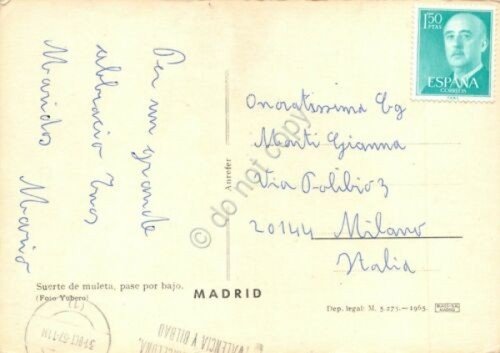 Per un grande
abbraccio tuos
Maridos
Mario
Suerte de muleta, pase por bajo.
(Foto Yubero)
MADRID
Anrefer
1,50
PTAS
ESPAÑA
CORREOS
Onoratissima Sg
Monti Gianna
Via Polibio 3
20144 Milano
Italia
Dep. legal: M. 5.275.—1965.
MADRID
© do not copy
VALENCIA Y BILBAO
BARCELONA,
(1)